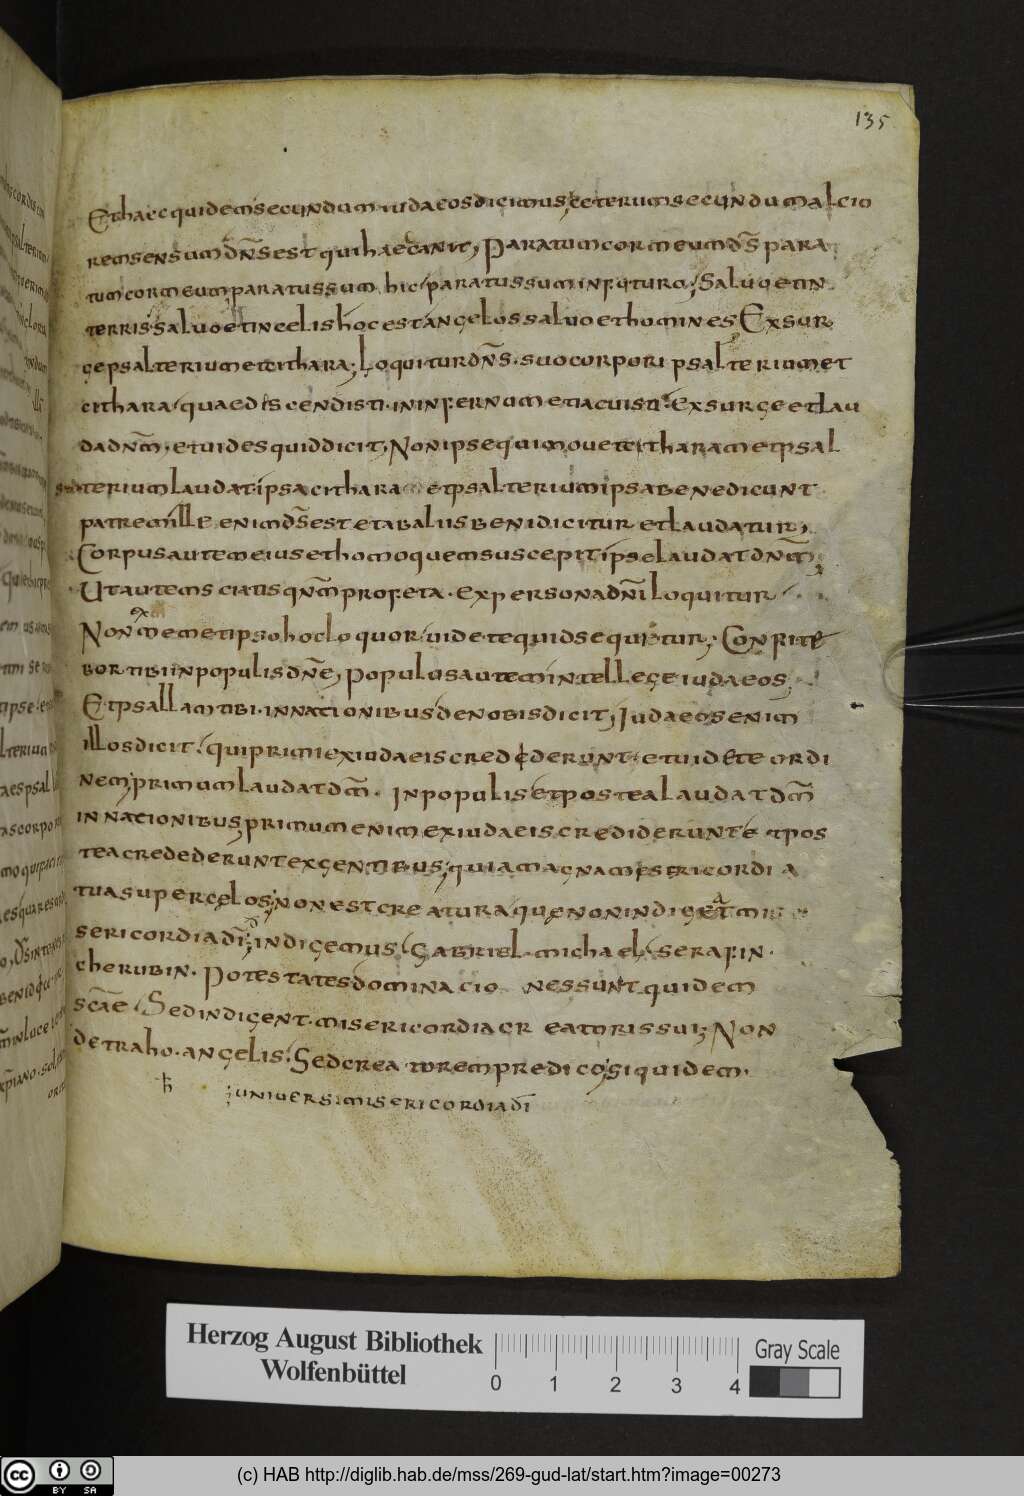 135
Et haec quidem secundum iudaeos dicimus, ceterum secundum alcio
rem sensum dn̄s est qui haec canit, Paratum cor meum ds̄ para
tum cor meum, paratus sum hic, paratus sum in futuro, Saluo et in
terris, saluo et in celis hoc est angelos saluo et homines Exsur
ge psalterium et cithara, Loquitur dn̄s suo corpori psalterium et
cithara quae discendisti in infernum et tacuisti Exsurge et lau
da dn̄m, et uides quid dicit, Non ipse qui mouet citharam et psal
terium laudat ipsa cithara et psalterium ipsa benedicunt
patrem ille enim ds̄ est et ab aliis benidicitur et laudatur,
Corpus autem eius et homo quem suscepit ipse laudat dn̄m,
Ut autem sciatis qn̄m profeta ex persona dn̄i loquitur
ex
Non memetipso hoc loquor uidete quid sequitur, Confite
bor tibi in populis dn̄e, populus autem intellege iudaeos,
Et psallam tibi in nationibus de nobis dicit, Iudaeos enim
illos dicit qui primi ex iudaeis crediderunt, et uidete ordi
nem, primum laudat dm̄ in populis et postea laudat dm̄
in nacionibus, primum enim ex iudaeis crediderunt et pos
tea credederunt ex gentibus, quia magna misericordia
tua super celos, non est creatura que non indiget mi
sericordia dī, indigemus Gabriel michael serafin
cherubin. Potestates dominacio nes sunt quidem
scāe Sed indigent misericordia creatoris sui, Non
detraho angelis, Sed creatorem predico, Siquidem
h̄ uniuersi misericordia dī
Herzog August Bibliothek
Wolfenbüttel
0 1 2 3 4
Gray Scale
cc BY SA
(c) HAB http://diglib.hab.de/mss/269-gud-lat/start.htm?image=00273